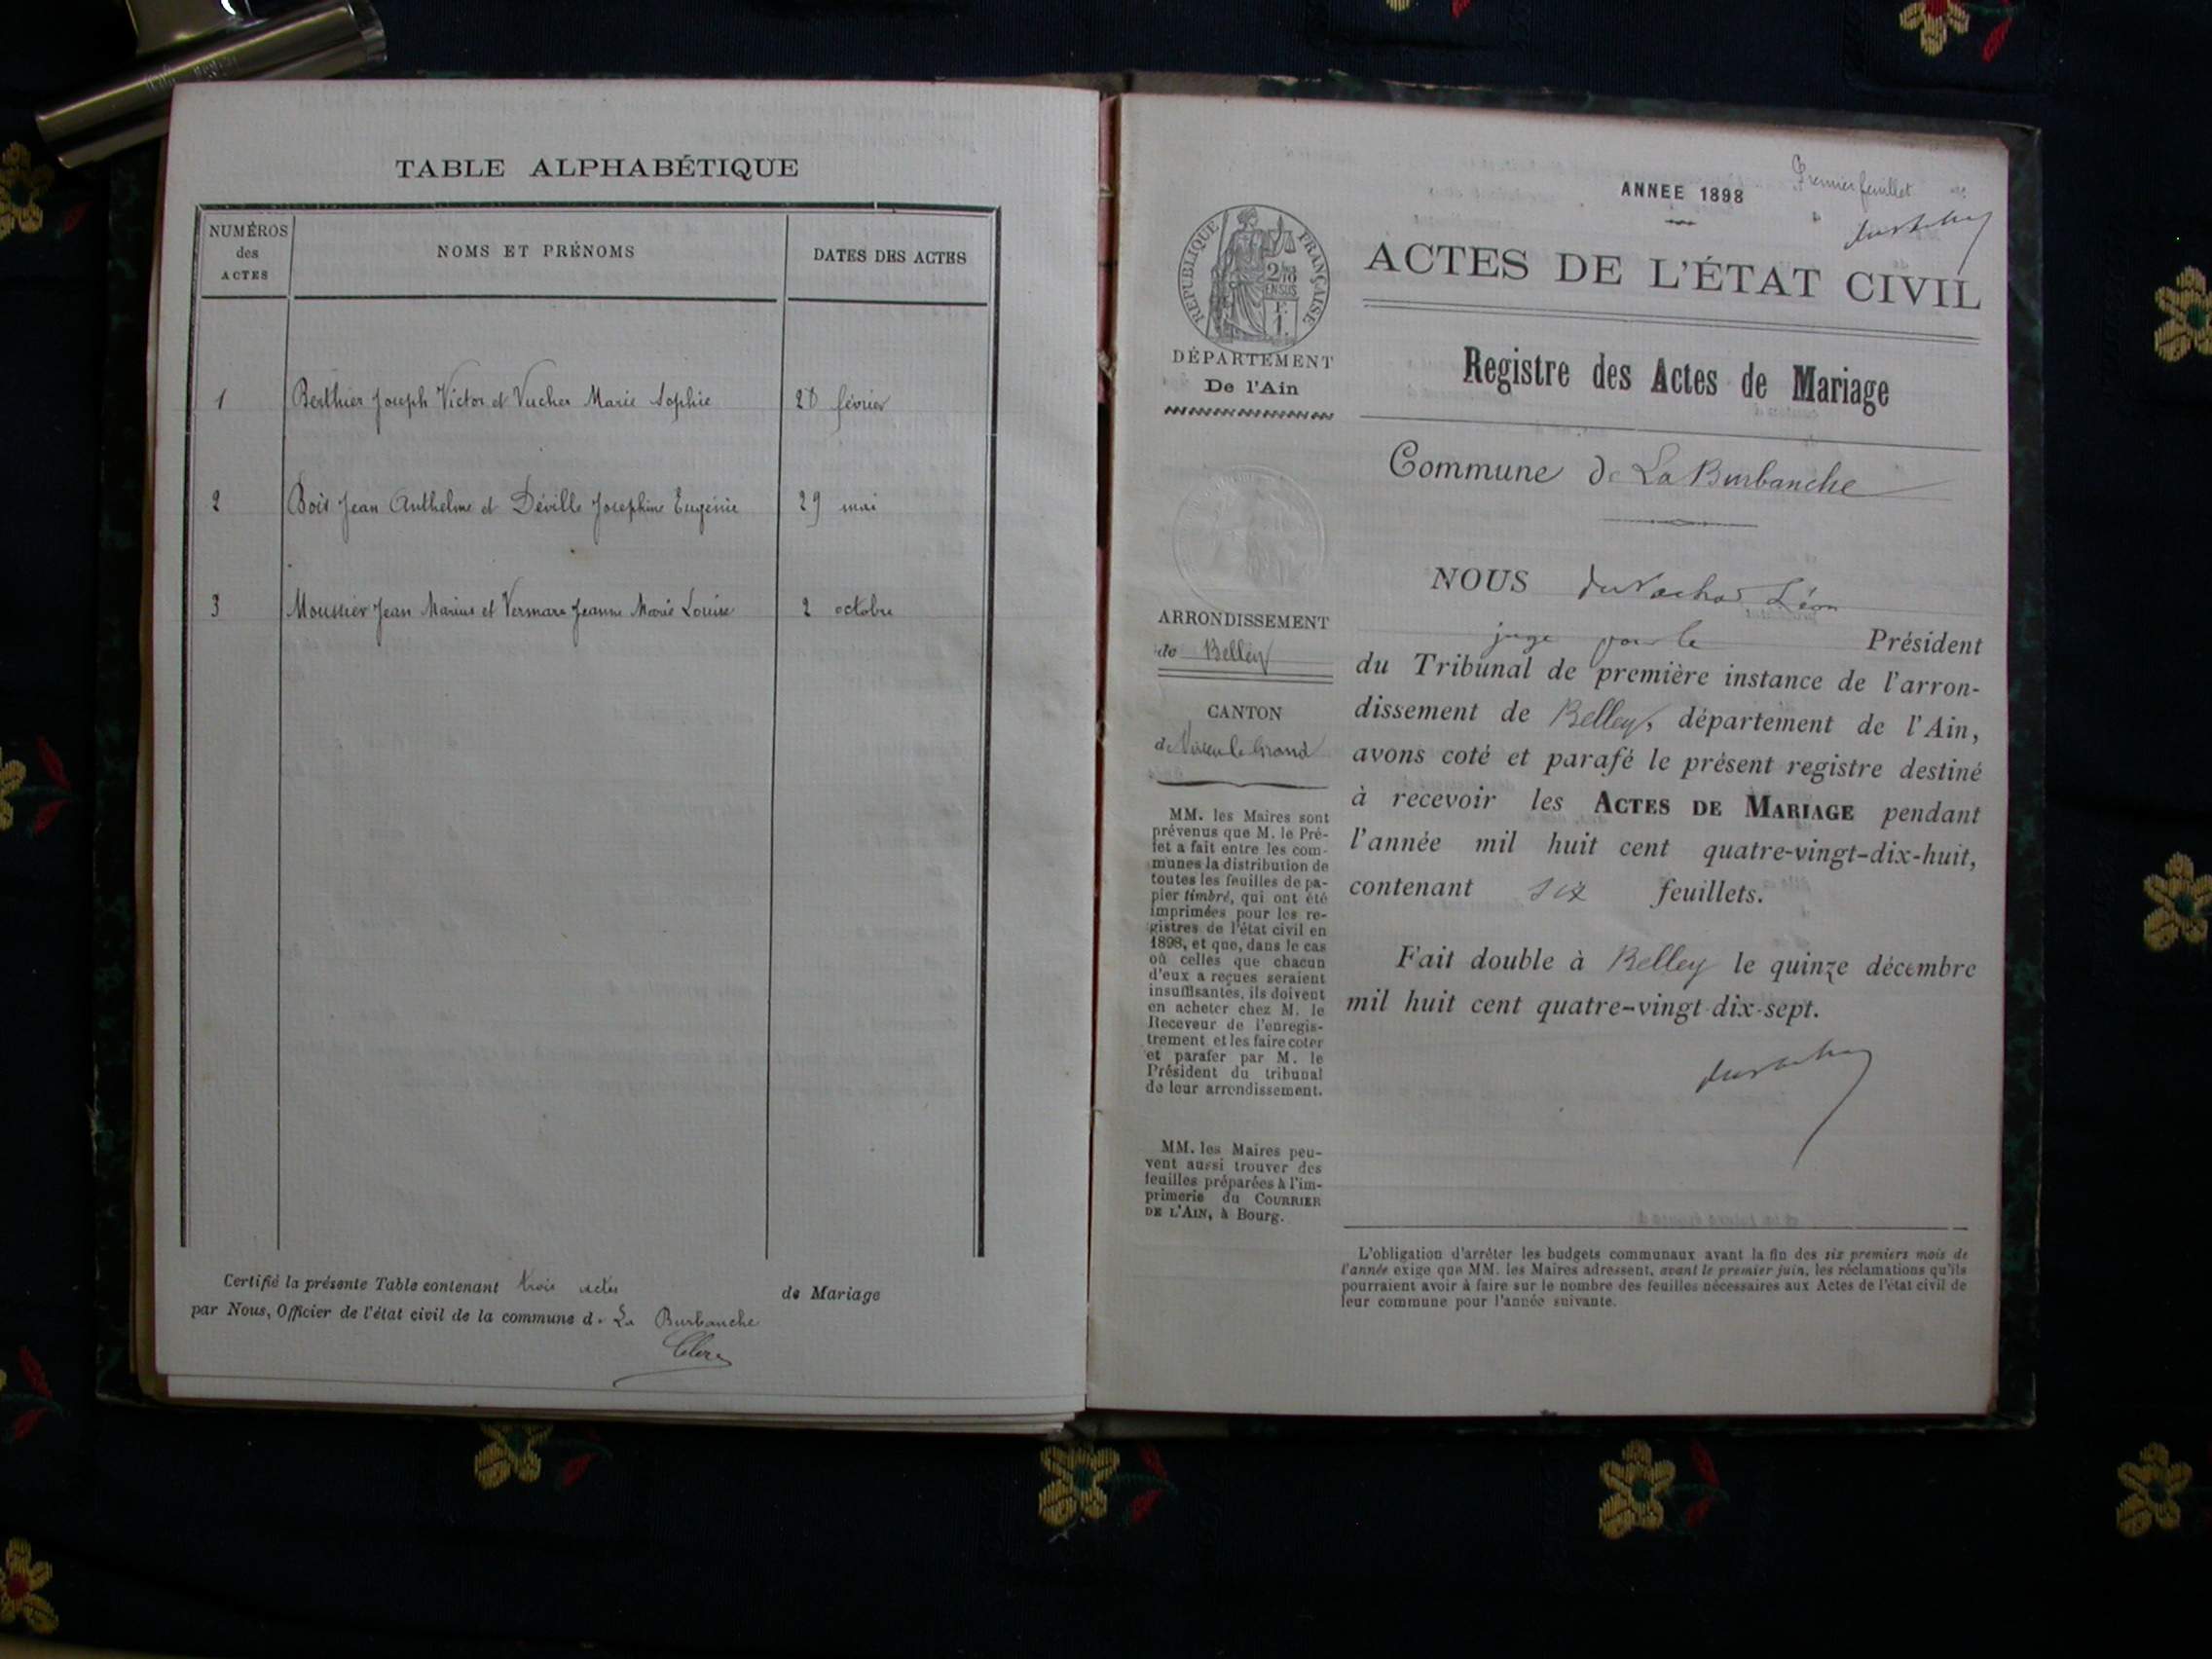 TABLE ALPHABÉTIQUE
NUMÉROS
des
ACTES
NOMS ET PRÉNOMS
DATES DES ACTES
1 Berthier Joseph Victor et Vucher Marie Sophie 28 février
2 Bois Jean Anthelme et Déville Josephine Eugénie 29 mai
3 Moussier Jean Marius et Vermare Jeanne Marie Louise 2 octobre
Certifié la présente Table contenant trois actes de Mariage
par Nous, Officier de l'état civil de la commune de La Burbanche
Clerc
Premier feuillet
ANNEE 1898
ACTES DE L'ÉTAT CIVIL
RÉPUBLIQUE FRANÇAISE
DÉPARTEMENT
De l'Ain
Registre des Actes de Mariage
Commune de La Burbanche
ARRONDISSEMENT
de Belley
CANTON
de Virieu le Grand
MM. les Maires sont
prévenus que M. le Pré-
fet a fait entre les com-
munes la distribution de
toutes les feuilles de pa-
pier timbré, qui ont été
imprimées pour les re-
gistres de l'état civil en
1898, et que, dans le cas
où celles que chacun
d'eux a reçues seraient
insuffisantes, ils doivent
en acheter chez M. le
Receveur de l'enregis-
trement et les faire coter
et parafer par M. le
Président du tribunal
de leur arrondissement.
MM. les Maires peu-
vent aussi trouver des
feuilles préparées à l'im-
primerie du COURRIER
DE L'AIN, à Bourg.
NOUS Léon
juge pour le Président
du Tribunal de première instance de l'arron-
dissement de Belley, département de l'Ain,
avons coté et parafé le présent registre destiné
à recevoir les ACTES DE MARIAGE pendant
l'année mil huit cent quatre-vingt-dix-huit,
contenant six feuillets.
Fait double à Belley le quinze décembre
mil huit cent quatre-vingt-dix-sept.
L'obligation d'arrêter les budgets communaux avant la fin des six premiers mois de
l'année exige que MM. les Maires adressent, avant le premier juin, les réclamations qu'ils
pourraient avoir à faire sur le nombre des feuilles nécessaires aux Actes de l'état civil de
leur commune pour l'année suivante.